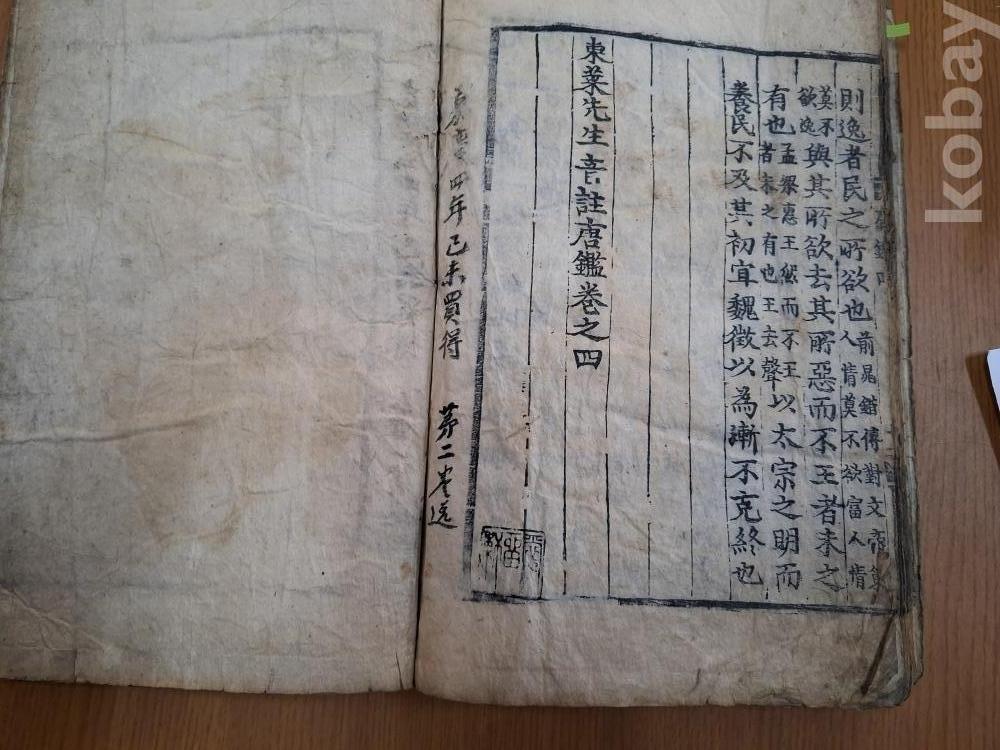 則逸者民之所欲也前晁錯傳對文帝策人情莫不欲富人情
莫不欲逸與其所欲去其所惡而不王者未之
有也孟梁惠王然而不王者未之有也王去聲以太宗之明而
養民不及其初宜魏徵以為漸不克終也
東萊先生音註唐鑑卷之四
嘉慶四年己未買得 第二卷
kobay